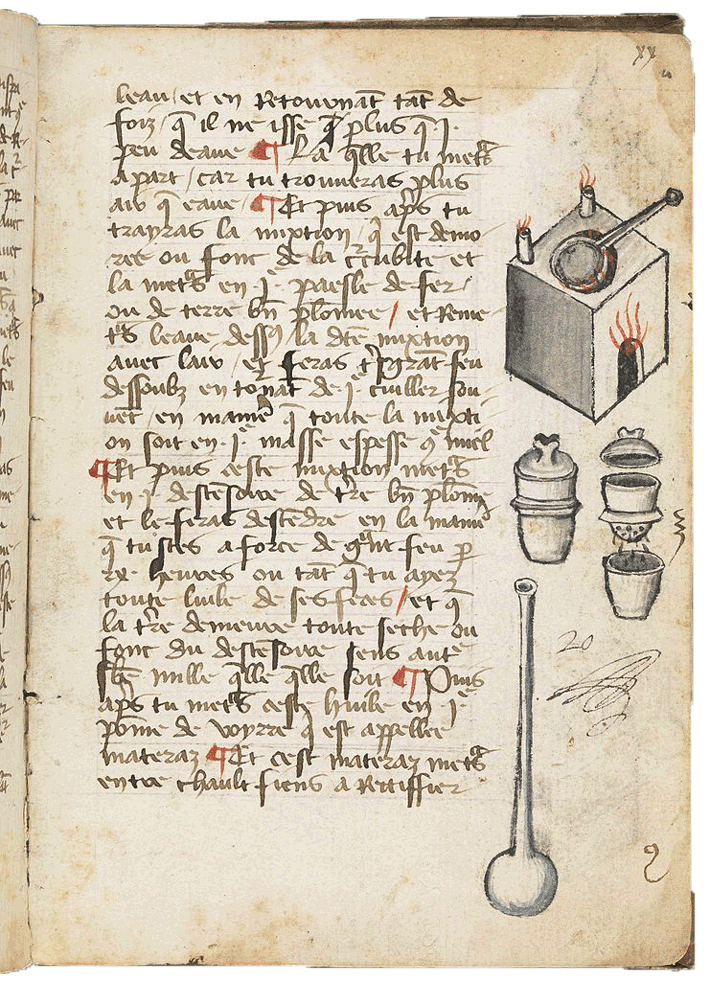 xx
leau / et en Retournāt tāt de
foiz / q̄ il ne isse plus q̄ j.
peu deaue ¶ La q̄lle tu mett̄s
apart / car tu trouueras plus
aiv q̄ eaue / ¶ Et puis ap̄s tu
trayras la mixtion / q̄ est demo
ree ou fons de la cucubite et
la mett̄s en j.ᵉ paesle de fer /
ou de terre bn̄ plōmee / et Reme
tt̄s leaue dess⁹ la dt̄e mixtion
auec laiv / et feras t̄sgrāt feu
dessoubz en tonāt de j.ᵉ cuiller sou
uēt / en maniē q̄ toute la mixti
on soit en j.ᵉ masse espesse cᵉ miel
¶ Et puis ceste mixtion mett̄s
en j. destēsoire de t̄re bn̄ plōme
et le feras destēdre en la maniē
q̄ tu sces a force de gᵃnt feu p
xx. heures ou tāt q̄ tu ayez
toute luile de ses feces / et q̄
la t̄re demeure toute seche ou
fons du destēsoire sens autᵉ
hūe nulle q̄lle q̄lle soit ¶ Puis
ap̄s tu mett̄s ceste huile en j.ᵉ
pōme de voyrre q̄ est appellee
materaz ¶ Et cest materaz mett̄s
entre chault fiens a Rectiffier
20